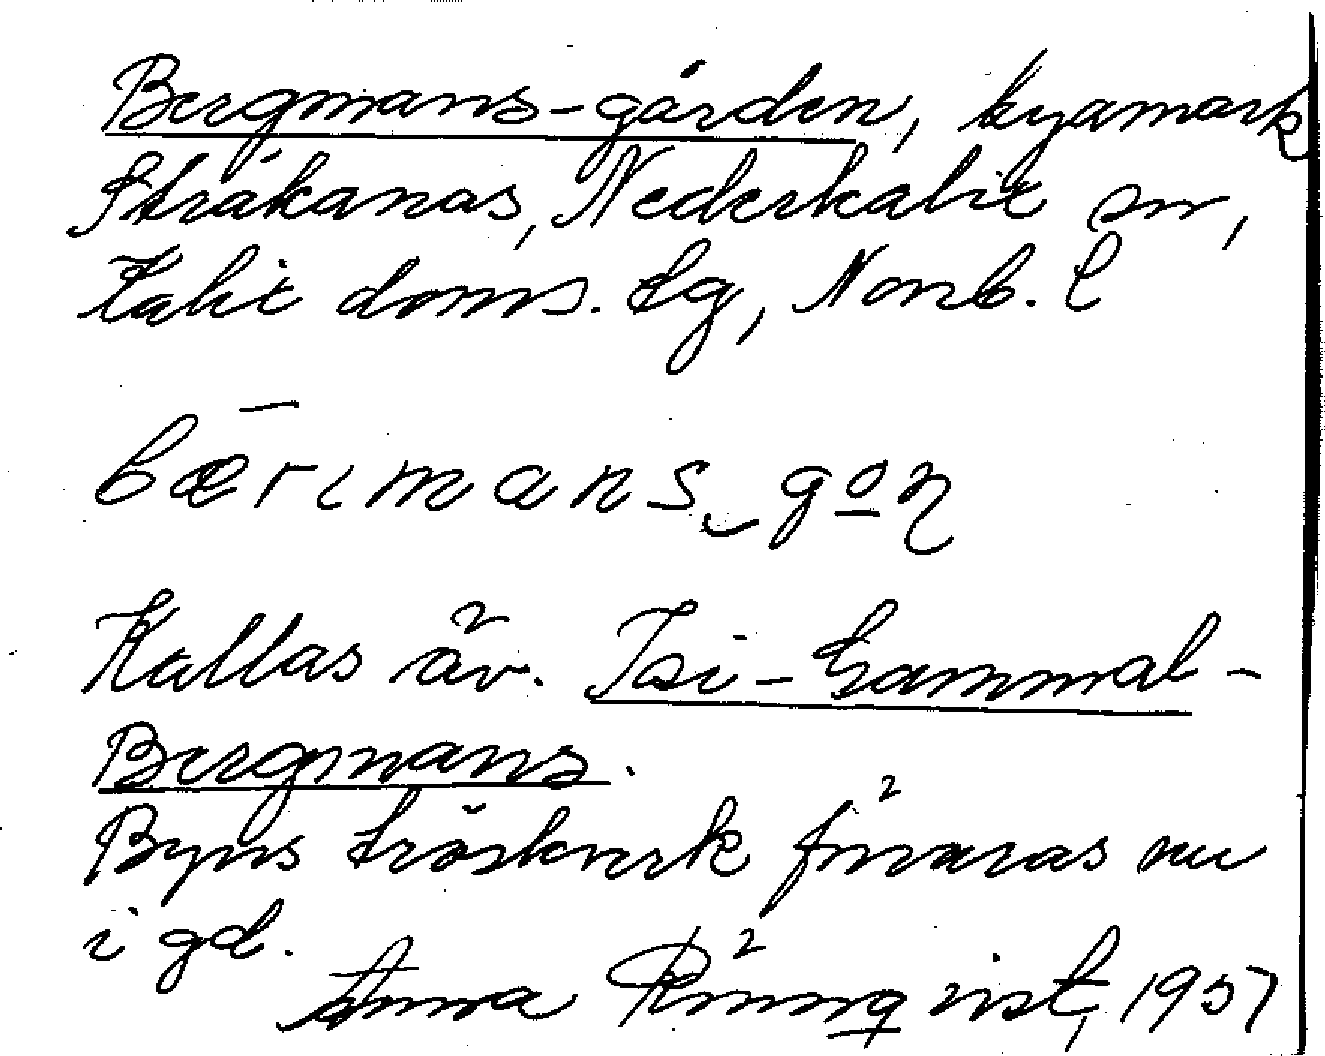 Bergmans-gården, byamark
Stråkanäs, Nederkalix sn,
Kalix doms. tg, Norrb. l
bærımans‿go̲n
Kallas äv. Isi-Gammal-
Bergmans.
Byns tröskverk förvaras nu
i gd.
Anna Rönnqvist, 1957